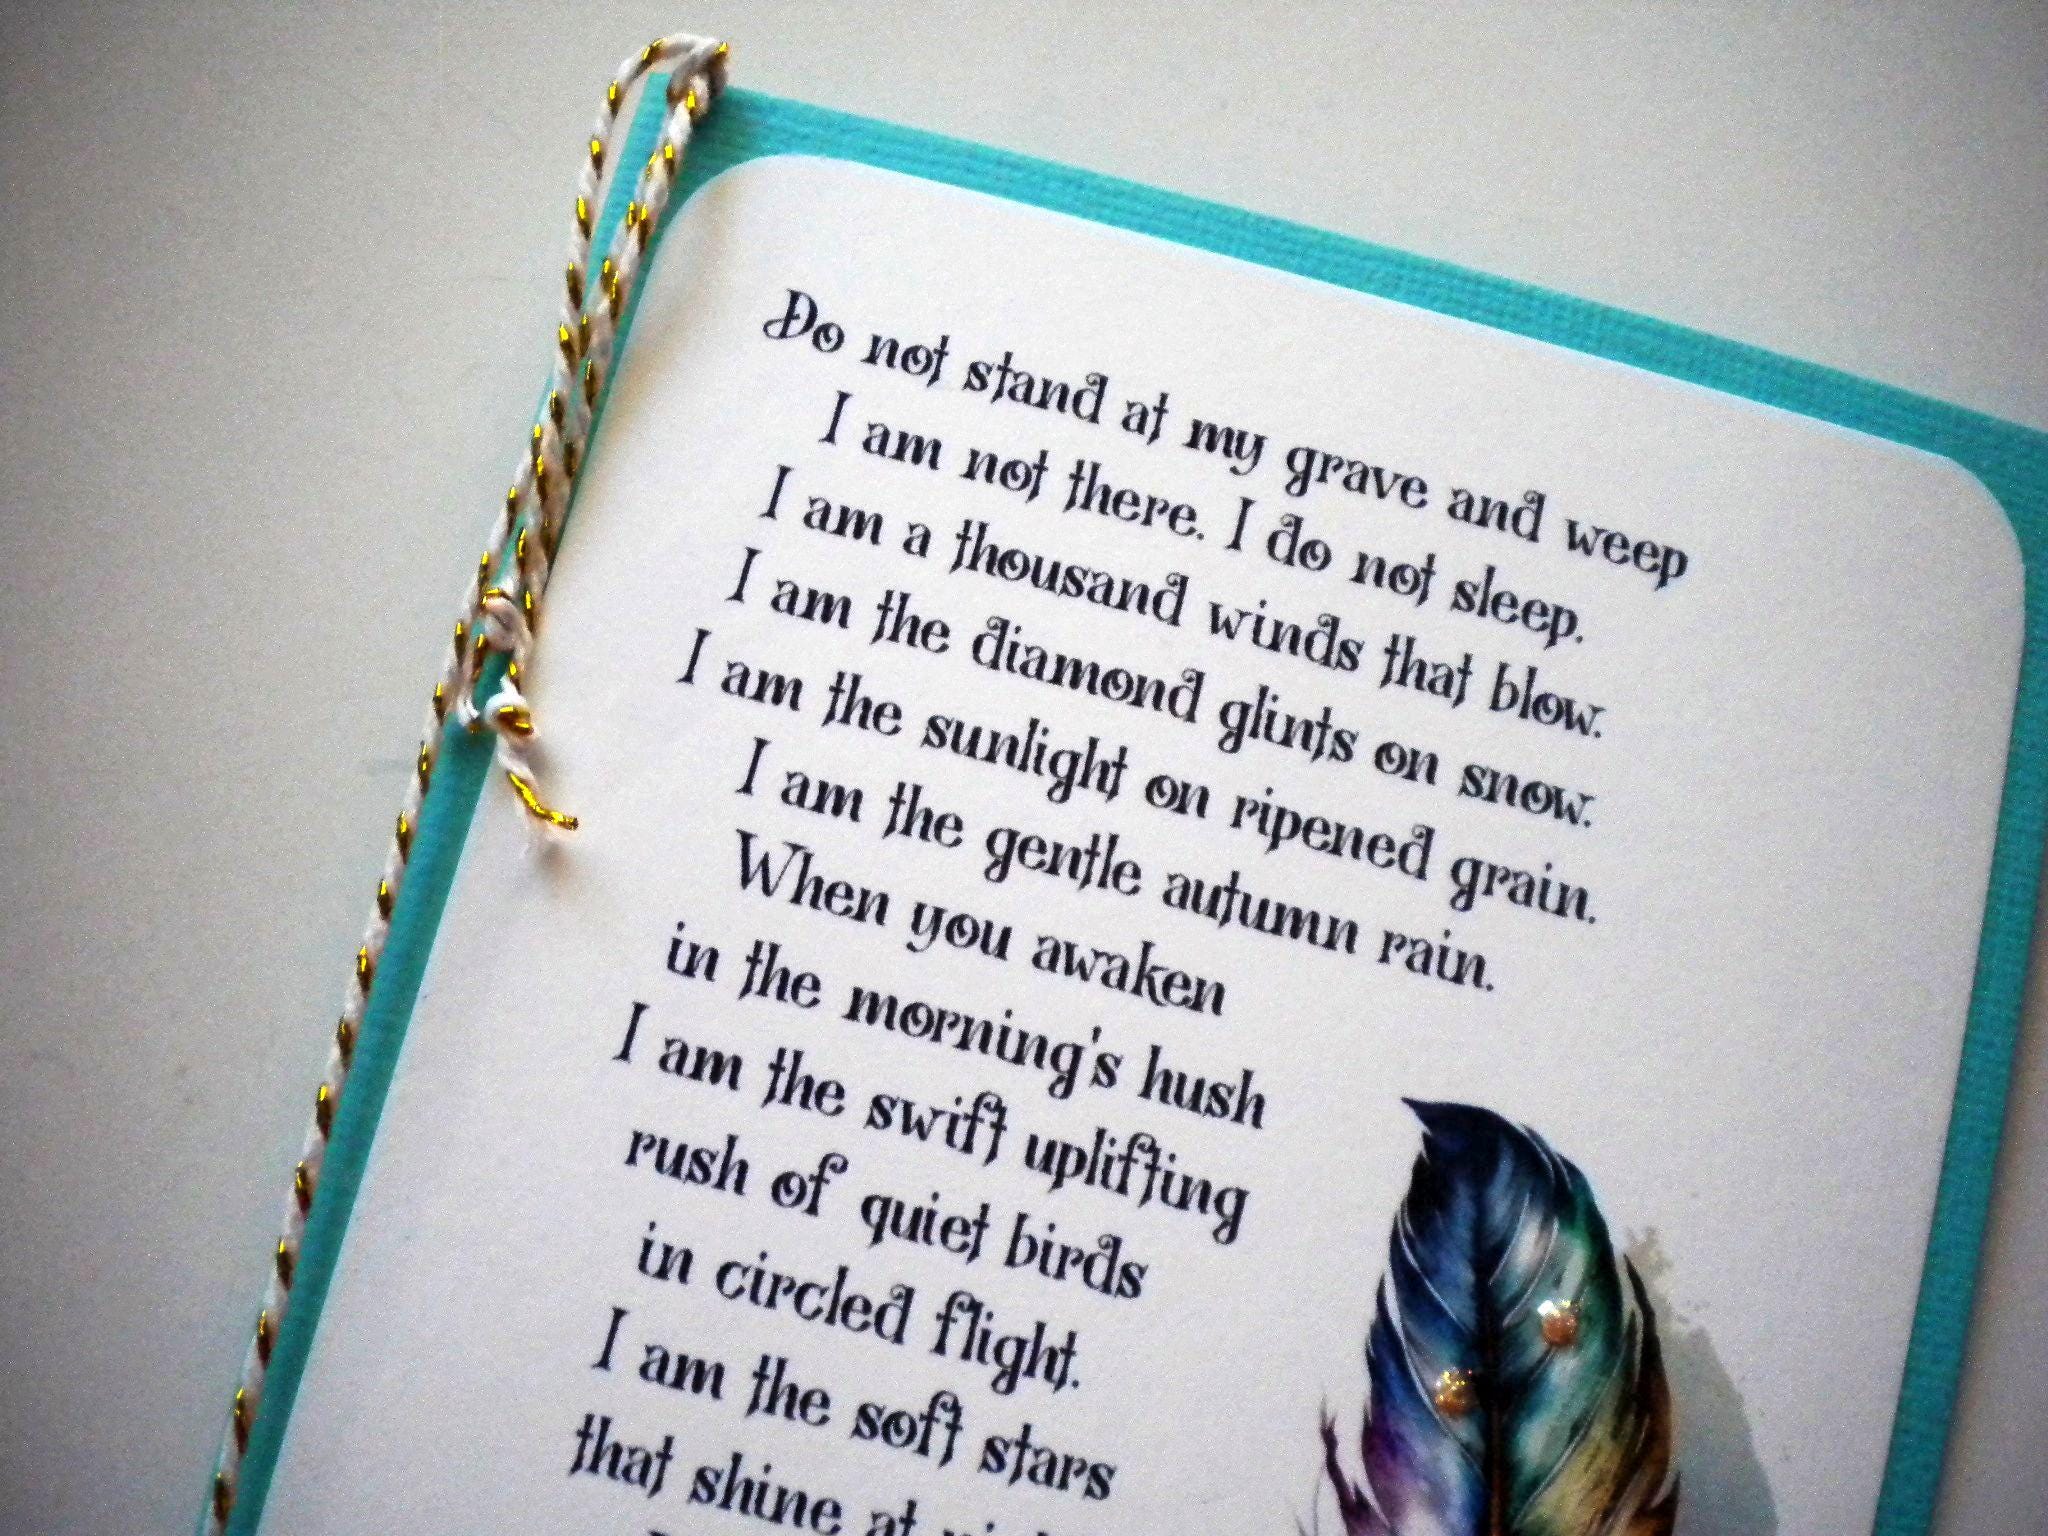 Do not stand at my grave and weep
I am not there. I do not sleep.
I am a thousand winds that blow.
I am the diamond glints on snow.
I am the sunlight on ripened grain.
I am the gentle autumn rain.
When you awaken
in the morning's hush
I am the swift uplifting
rush of quiet birds
in circled flight.
I am the soft stars
that shine at